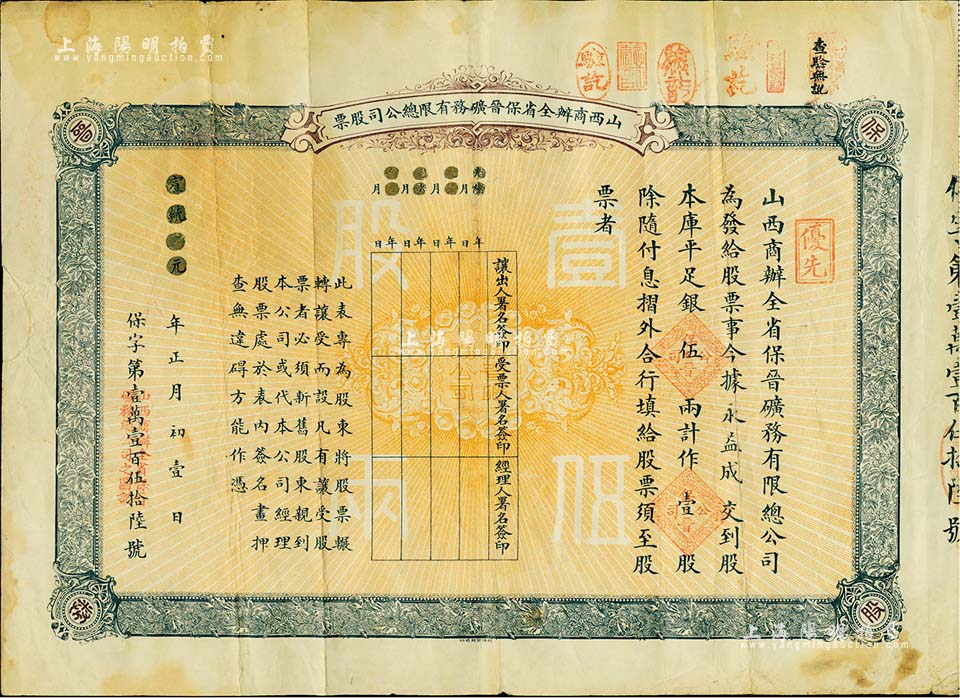 上海陽明拍賣
www.yangmingauction.com
查驗無訛
驗訖
山西商辦全省保晉礦務有限總公司股票
保
晉
股
票
優先
山西商辦全省保晉礦務有限總公司
為發給股票事今據永益成交到股
本庫平足銀伍兩計作壹股
除隨付息摺外合行填給股票須至股
票者
壹股
伍兩
年 月 日
年 月 日
年 月 日
年 月 日
讓出人署名簽印
受票人署名簽印
經理人署名簽印
此表專為股東將股票輾
轉讓受而設凡有讓受股
票者必須新舊股東親到
本公司或代本公司經理
股票處於表內簽名畫押
查無違碍方能作憑
宣統元年正月初壹日
保字第壹萬壹百伍拾陸號
保字第壹萬壹百伍拾陸號
上海陽明拍賣
www.yangmingauction.com
上海陽明拍賣
www.yangmingauction.com